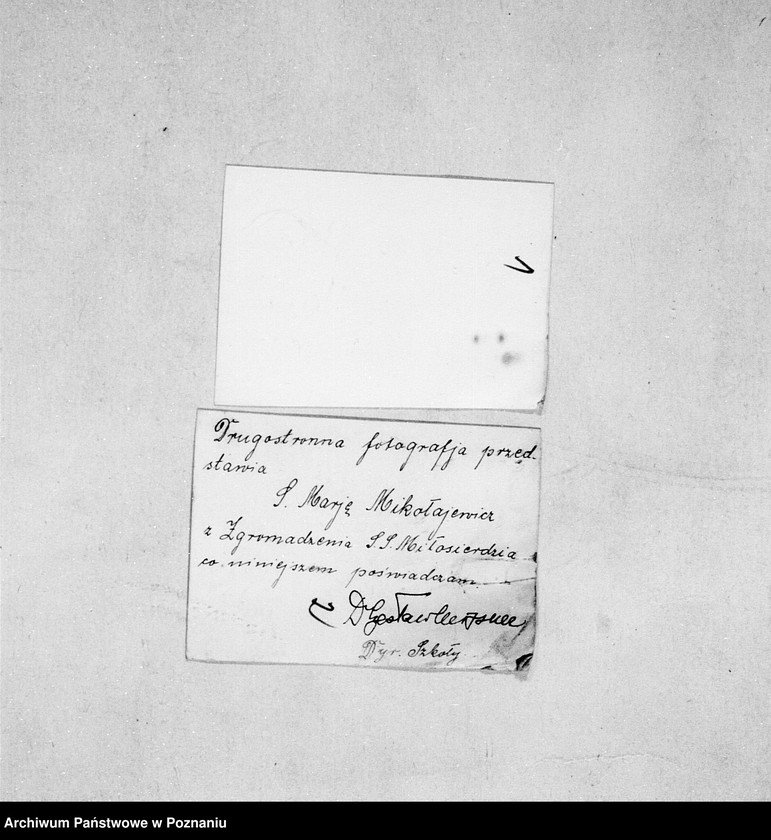 Drugostronna fotografja przed-
stawia
S. Marję Mikołajewicz
z Zgromadzenia S.S. Miłosierdzia
co niniejszem poświadczam
Dyr. Szkoły
Archiwum Państwowe w Poznaniu